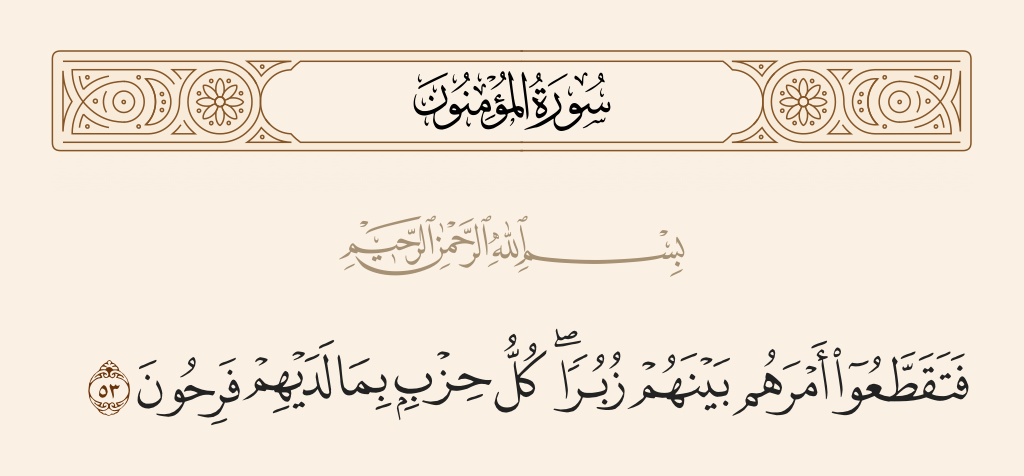 سُورَةُ المُؤْمِنُونَ
بِسْمِ ٱللَّهِ ٱلرَّحْمَٰنِ ٱلرَّحِيمِ
فَتَقَطَّعُوٓا۟ أَمْرَهُم بَيْنَهُمْ زُبُرًا ۖ كُلُّ حِزْبٍۭ بِمَا لَدَيْهِمْ فَرِحُونَ ٥٣